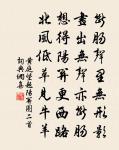 斷腸聲里無形影
畫出無聲亦斷腸
想得陽關更西路
北風低草見牛羊
黃庭堅題陽關圖二首
詞典網集